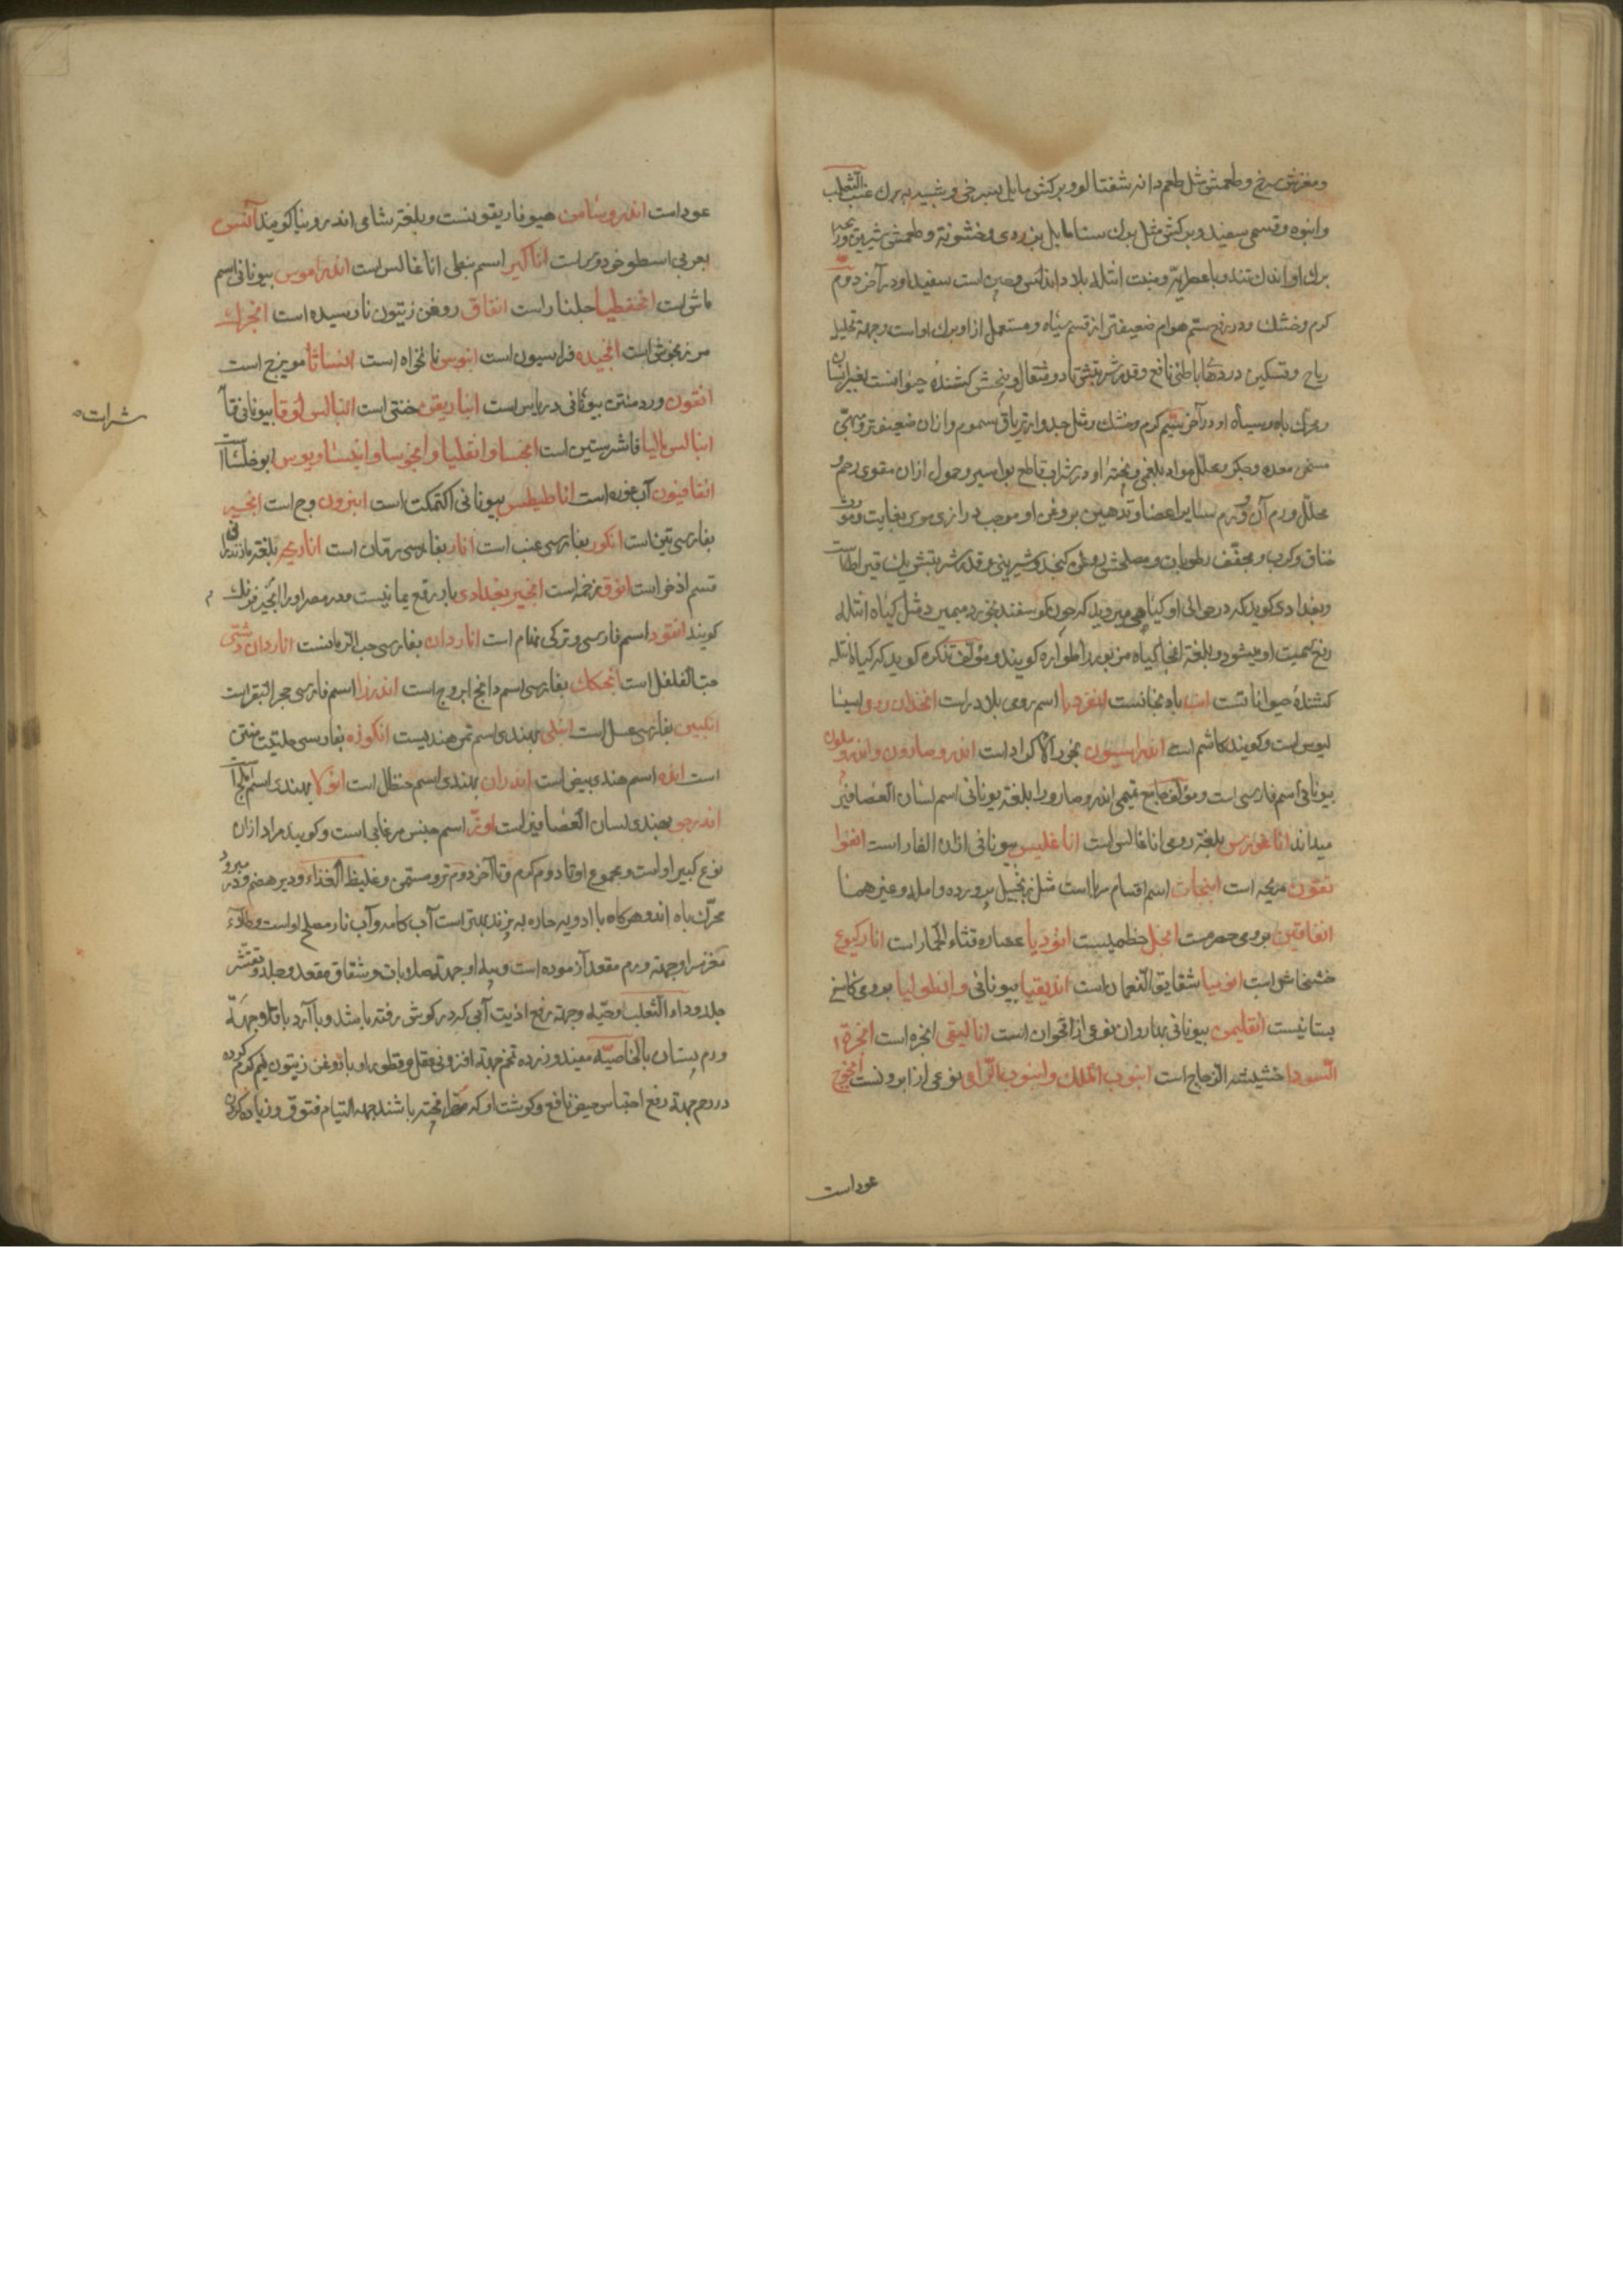 ومغزش سرخ و طعمش مثل طعم دانه شفتالو و برکش مایل بسرخی و شبیه به برك عنب الثعلب
وانبوه و قسمی سفید و برکش مثل برك سنا مایل بزردی و خشونة و طعمش شیرین و
برك او اندك تند و با عطریة و منبت انتله بلاد اندلس و چین است سفید او در آخر دوم
کرم و خشك و در رفع ستم هوام ضعیفتر از قسم سیاه و مستعمل از او برك او است و جهة تحلیل
ریاح و تسکین دردهای باطنی نافع و قدر شربتش تا دو مثقال و بیخش کشندهٔ حیوانست بغیر انسان
و محرك باه و سیاه او در آخر سیّم کرم و خشك و مثل جدوار تریاق سموم و ازان ضعیفتر و
مسخن معده و جکر و محلل مواد بلغمی و پختهٔ او در شراب قاطع بواسیر و حمول ازان مقوی رحم و
محلل ورم آن و ورم سایر اعضا و تدهین بروغن او موجب درازی موی بغایت و مورث
خناق و کرب و مجفّف رطوبات و مصلحش روغن کنجد و شیرینی و قدر شربتش یك قیراط است
و بغدادی کوید که در حوالی او کیاهی میروید که چون کوسفند بخورد میمیرد مثل کیاه انتله
رفع سمیت او میشود و بلغة انجا کیاه مزبور را طواره کویند و مؤلف تذکره کوید که کیاه انتله
کشندهٔ حیوانا تست انب بادنجانست انقردیا اسم رومی بلادر است انجدان رومی سیسا
لیوس است و کویند کاشم است اندراسیون بخور الاکراد است اندروصارون و اندروسلون
یونانی اسم فارسی است و مؤلف جامع تمیمی اندروصارو را بلغة یونانی اسم لسان العصافیر
میداند اناغورس بلغة رومی اناغالس است اناغلیس بیونانی اذان الفار است انفوا
نقون مریحه است انبجات اسم اقسام مربا است مثل زنجبیل پرورده و امله و غیر همنا
انفاقین برومی حصرمست انجل خطمیست انودیا عصاره قثاء الحمار است انارکیوع
خشخاش است انونیا شقایق النعمان است اندیقیا بیونانی و انطولیا برومی کاسنی
بستانیست انقلیمن بیونانی بدار وان نوعی از اقحوان است انالیقی انجره است انجرة ا
لسودا حشیشة الزجاج است انبوب الملك و انبوب الراعی نوعی از ابرونست انجوج
عود است
عود است اندروسامن هیوفاریقونست و بلغة شامی اندرونیا کویند آنس
بعربی اسطوخودوس است اناکیر اسم نبطی اناغالس است اندراموس بیونانی اسم
ماش است انحفطیا حلبنا راست انفاق روغن زیتون نارسیده است انجرك
مرزنجوش است انجیده فراسیون است انیوس نانخواه است انساثا مویزج است
انقون ورد منتن بیونانی دریاس است انباریقن خنثی است انبالس لوقا بیونانی فآ
انبالس مالیا فاشرستین است انجسا و انقلیا و انجوسا و انیستا و یوس ابو خلسا است
انقافیون آب غوره است اناطیطس بیونانی اکتمکت است انترون وج است انجیر
بفارسی تین است انکور بفارسی عنب است انار بفارسی رمّان است انار یحر بلغة مازندرانی
قسم اذخر است انوق رخمه است انجیر بغدادی بار رقع یمانیست و در مصر او را انجیر فرنك
کویند انقود اسم فارسی و ترکی نمام است اناردان بفارسی حب الرمانست اناردان دشتی
حب الفلفل است انجکك بفارسی اسم دانج ابروج است اندرزا اسم فارسی حجر البقر است
انکبین بفارسی عسل است انبلی بهندی اسم تمر هندیست انکوزه بفارسی حلتیت منتن
است انده اسم هندی بیض است اندران بهندی اسم حنظل است انولا بهندی اسم املج است
اندرجو بهندی لسان العصافیر است اوز اسم جنس مرغابی است و کویند مراد ازان
نوع کبیر او است و مجموع او تا دوم کرم و تا آخر دوم تر و مسمن و غلیظ الغذاء و دیر هضم و در مبرود
محرّك باه اند و هرکاه با ادویه حاره به پزند بهتر است آب کامه و آب نار مصلح او است و طلاء
مغز سر او جهة ورم مقعد آزموده است و پیه او جهة صلابات و شقاق مقعد و جلد و تقشر
جلد و داء الثعلب و حیّه و جهة رفع اذیت آبی که در کوش رفته باشد و با آرد باقلا و جهة
ورم پستان بالخاصیّه مفید و زرده تخم جهة افزونی عقل و قطور او با روغن زیتون نیم کرم کرده
در رحم جهة رفع احتباس حیض نافع و کوشت او که مهرّا پخته باشند جهة التیام فتوق و زیاده کردن
شراته